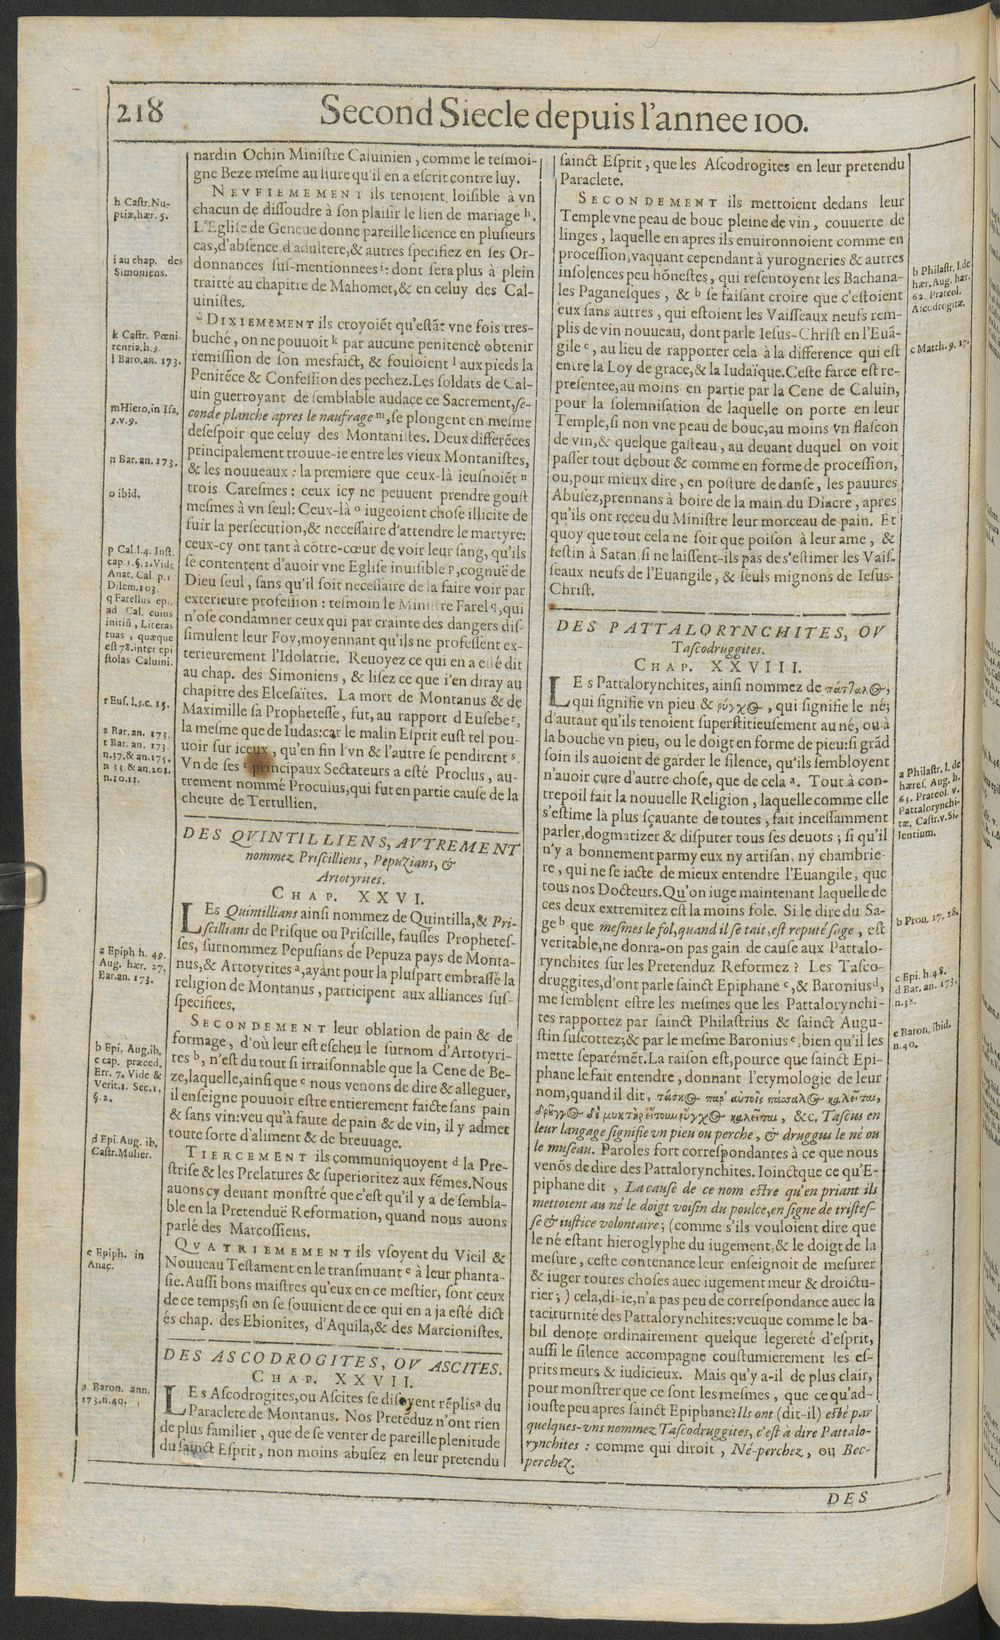 218
Second Siecle depuis l'annee 100.
nardin Ochin Ministre Caluinien, comme le tesmoi-
gne Beze mesme au liure qu'il en a escrit contre luy.
NEVFIEMEMENT ils tenoient loisible à vn
chacun de dissoudre à son plaisir le lien de mariage h.
L'Eglise de Geneue donne pareille licence en plusieurs
cas, d'absence, d'adultere, & autres specifiez en ses Or-
donnances sus-mentionnees i: dont sera plus à plein
traitté au chapitre de Mahomet, & en celuy des Cal-
uinistes.
DIXIEMEMENT ils croyoiēt qu'estāt vne fois tres-
buché, on ne pouuoit k par aucune penitence obtenir
remission de son mesfaict, & fouloient l aux pieds la
Penitēce & Confession des pechez. Les soldats de Cal-
uin guerroyant de semblable audace ce Sacrement, se-
conde planche apres le naufrage m, se plongent en mesme
desespoir que celuy des Montanistes. Deux differēces
principalement trouue-ie entre les vieux Montanistes,
& les nouueaux: la premiere que ceux-là ieusnoiēt n
trois Caresmes: ceux icy ne peuuent prendre goust
mesmes à vn seul: Ceux-là o iugeoient chose illicite de
fuir la persecution, & necessaire d'attendre le martyre:
ceux-cy ont tant à cōtre-cœur de voir leur sang, qu'ils
se contentent d'auoir vne Eglise inuisible p, cognuë de
Dieu seul, sans qu'il soit necessaire de la faire voir par
exterieure profession: tesmoin le Ministre Farel q, qui
n'ose condamner ceux qui par crainte des dangers dis-
simulent leur Foy, moyennant qu'ils ne professent ex-
terieurement l'Idolatrie. Reuoyez ce qui en a esté dit
au chap. des Simoniens, & lisez ce que i'en diray au
chapitre des Elcesaïtes. La mort de Montanus & de
Maximille sa Prophetesse, fut, au rapport d'Eusebe r,
la mesme que de Iudas: car le malin Esprit eust tel pou-
uoir sur iceux, qu'en fin l'vn & l'autre se pendirent s.
Vn de ses t principaux Sectateurs a esté Proclus, au-
trement nommé Proculus, qui fut en partie cause de la
cheute de Tertullien.
DES QVINTILLIENS, AVTREMENT
nommez Priscilliens, Pepuzians, &
Artotyrites.
CHAP. XXVI.
LEs Quintillians ainsi nommez de Quintilla, & Pri-
scillians de Prisque ou Priscille, fausses Prophetes-
ses, surnommez Pepusians de Pepuza pays de Monta-
nus, & Artotyrites a, ayāt pour la pluspart embrassé la
religion de Montanus, participent aux alliances sus-
specifiees.
SECONDEMENT leur oblation de pain & de
formage, d'où leur est escheu le surnom d'Artotyri-
tes b, n'est du tout si irraisonnable que la Cene de Be-
ze, laquelle, ainsi que c nous venons de dire & alleguer,
il enseigne pouuoir estre entierement faicte sans pain
& sans vin: veu qu'à faute de pain & de vin, il y admet
toute sorte d'aliment & de breuuage.
TIERCEMENT ils communiquoyent d la Pre-
strise & les Prelatures & superioritez aux fēmes. Nous
auons cy deuant monstré que c'est qu'il y a de sembla-
ble en la Pretenduë Reformation, quand nous auons
parlé des Marcossiens.
QVATRIEMEMENT ils vsoyent du Vieil &
Nouueau Testament en le transmuant e à leur phanta-
sie. Aussi bons maistres qu'eux en ce mestier, sont ceux
de ce temps; si on se souuient de ce qui en a ja esté dict
és chap. des Ebionites, d'Aquila, & des Marcionistes.
DES ASCODROGITES, OV ASCITES.
CHAP. XXVII.
LEs Ascodrogites, ou Ascites se disoyent rēplis a du
Paraclete de Montanus. Nos Pretēduz n'ont rien
de plus familier, que de se venter de pareille plenitude
du sainct Esprit, non moins abusez en leur pretendu
h Castr. Nu-
ptiæ, hær. 5.
i au chap. des
Simoniens.
k Castr. Pœni
tentia, h. 3.
l Baro. an. 173.
m Hiero. in Isa.
3. v. 9.
n Bar. an. 173.
o ibid.
p Cal. l. 4. Inst.
cap 1. §. 2. Vide
Anat. Cal. p. 1
Dilem. 103
q Farellus epi.
ad Cal. cuius
initiū, Literas
tuas, quæque
est 78. inter epi
stolas Caluini.
r Eus. l. 5. c. 15.
s Bar. an. 173.
t Bar. an. 173.
n. 37. & an. 175.
n 35. & an. 201.
n. 10. 11.
a Epiph h. 49.
Aug. hær. 27.
Bar. an. 173.
b Epi. Aug. ib.
c cap. præced.
Err. 7. Vide &
Verit. 1. Sec. 1.
§. 2.
d Epi. Aug. ib.
Castr. Mulier.
e Epiph. in
Anac.
a Baron. ann.
173. n. 40.
sainct Esprit, que les Ascodrogites en leur pretendu
Paraclete.
SECONDEMENT ils mettoient dedans leur
Temple vne peau de bouc pleine de vin, couuerte de
linges, laquelle en apres ils enuironnoient comme en
procession, vaquant cependant à yurogneries & autres
insolences peu hōnestes, qui resentoyent les Bachana-
les Paganesques, & b se faisant croire que c'estoient
eux sans autres, qui estoient les Vaisseaux neufs rem-
plis de vin nouueau, dont parle Iesus-Christ en l'Euā-
gile c, au lieu de rapporter cela à la difference qui est
entre la Loy de grace, & la Iudaïque. Ceste farce est re-
presentee, au moins en partie par la Cene de Caluin,
pour la solemnisation de laquelle on porte en leur
Temple, si non vne peau de bouc, au moins vn flascon
de vin, & quelque gasteau, au deuant duquel on voit
passer tout debout & comme en forme de procession,
ou, pour mieux dire, en posture de danse, les pauures
Abusez, prennans à boire de la main du Diacre, apres
qu'ils ont receu du Ministre leur morceau de pain. Et
quoy que tout cela ne soit que poison à leur ame, &
festin à Satan, si ne laissent-ils pas de s'estimer les Vais-
seaux neufs de l'Euangile, & seuls mignons de Iesus-
Christ.
DES PATTALORYNCHITES, OV
Tascodruggites.
CHAP. XXVIII.
LEs Pattalorynchites, ainsi nommez de πάτταλος,
qui signifie vn pieu & ρύγχος, qui signifie le né;
d'autant qu'ils tenoient superstitieusement au né, ou à
la bouche vn pieu, ou le doigt en forme de pieu: si grād
soin ils auoient de garder le silence, qu'ils sembloyent
n'auoir cure d'autre chose, que de cela a. Tout à con-
trepoil fait la nouuelle Religion, laquelle comme elle
s'estime la plus sçauante de toutes, fait incessamment
parler, dogmatizer & disputer tous ses deuots; si qu'il
n'y a bonnement parmy eux ny artisan, ny chambrie-
re, qui ne se iacte de mieux entendre l'Euangile, que
tous nos Docteurs. Qu'on iuge maintenant laquelle de
ces deux extremitez est la moins fole. Si le dire du Sa-
ge b que mesmes le fol, quand il se tait, est reputé sage, est
veritable, ne donra-on pas gain de cause aux Pattalo-
rynchites sur les Pretenduz Reformez? Les Tasco-
druggites, d'ont parle sainct Epiphane c, & Baronius d,
me semblent estre les mesmes que les Pattalorynchi-
tes rapportez par sainct Philastrius & sainct Augu-
stin suscottez; & par le mesme Baronius e, bien qu'il les
mette separémēt. La raison est, pource que sainct Epi-
phane le fait entendre, donnant l'etymologie de leur
nom, quand il dit, τάσκος παρ' αὐτοῖς πάσσαλος καλεῖται,
δρῦγγος δὲ μυκτὴρ εἴτουν ρύγχος καλεῖται, &c. Tascus en
leur langage signifie vn pieu ou perche, & druggus le né ou
le museau. Paroles fort correspondantes à ce que nous
venōs de dire des Pattalorynchites. Ioinctque ce qu'E-
piphane dit, La cause de ce nom estre qu'en priant ils
mettoient au né le doigt voisin du poulce, en signe de tristes-
se & iustice volontaire; (comme s'ils vouloient dire que
le né estant hieroglyphe du iugement, & le doigt de la
mesure, ceste contenance leur enseignoit de mesurer
& iuger toutes choses auec iugement meur & droictu-
rier;) cela, di-ie, n'a pas peu de correspondance auec la
taciturnité des Pattalorynchites: veuque comme le ba-
bil denote ordinairement quelque legereté d'esprit,
aussi le silence accompagne coustumierement les es-
prits meurs & iudicieux. Mais qu'y a-il de plus clair,
pour monstrer que ce sont les mesmes, que ce qu'ad-
iouste peu apres sainct Epiphane? Ils ont (dit-il) esté par
quelques-vns nommez Tascodruggites, c'est à dire Pattalo-
rynchites: comme qui diroit, Né-perchez, ou Bec-
perchez.
b Philastr. l. de
hær. Aug. hær.
62. Prateol.
Ascodrogitæ.
c Matth. 9. 17.
a Philastr. l. de
hæres. Aug. h.
63. Prateol. v.
Pattalorynchi-
tæ, Castr. v. Si-
lentium.
b Prou. 17. 28.
c Epi. h. 48.
d Bar. an. 173.
n. 38.
e Baron. ibid.
n. 40.
DES